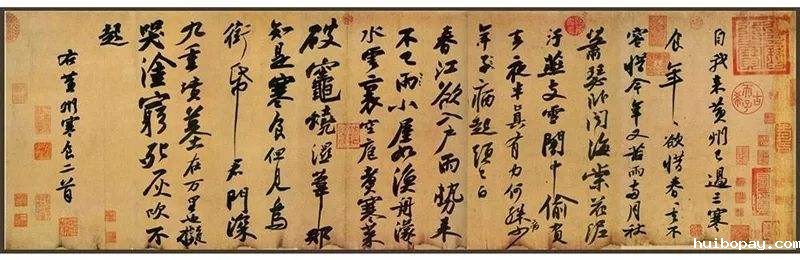 自我來黃州已過三寒
食年〻欲惜春〻去不
容惜今年又苦雨兩月秋
蕭瑟卧聞海棠花泥
汙燕支雪闇中偷負
去夜半真有力何殊病少
年子病起頭已白
春江欲入戶雨勢來
不已雨小屋如漁舟濛〻
水雲裏空庖煮寒菜
破竈燒濕葦那
知是寒食但見烏
銜帋君門深
九重墳墓在万里也擬
哭塗窮死灰吹不
起
右黃州寒食二首
huibopay.com